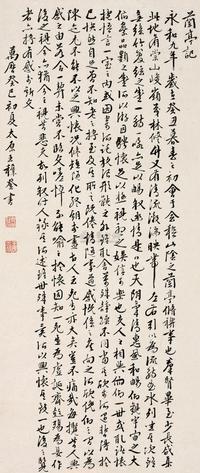 蘭亭記
永和九年歲在癸丑暮春之初會于會稽山陰之蘭亭脩禊事也羣賢畢至少長咸集
此地有崇山峻嶺茂林脩竹又有清流激湍映帶左右引以為流觴曲水列坐其次雖
無絲竹管弦之盛一觴一詠亦足以暢敘幽情是日也天朗氣清惠風和暢仰觀宇宙之大
俯察品類之盛所以遊目騁懷足以極視聽之娛信可樂也夫人之相與俯仰一世或取諸懷
抱悟言一室之內或因寄所託放浪形骸之外雖趣舍萬殊靜躁不同當其欣於所遇暫得於
己快然自足不知老之將至及其所之既倦情隨事遷感慨係之矣向之所欣俛仰之間以為
陳迹猶不能不以之興懷況脩短隨化終期於盡古人云死生亦大矣豈不痛哉每攬昔人興
感之由若合一契未嘗不臨文嗟悼不能喻之於懷固知一死生為虛誕齊彭殤為妄作後之
視今亦由今之視昔悲夫故列敘時人錄其所述雖世殊事異所以興懷其致一也後之覽
者亦將有感於斯文
萬曆癸巳初夏太原王穉登書